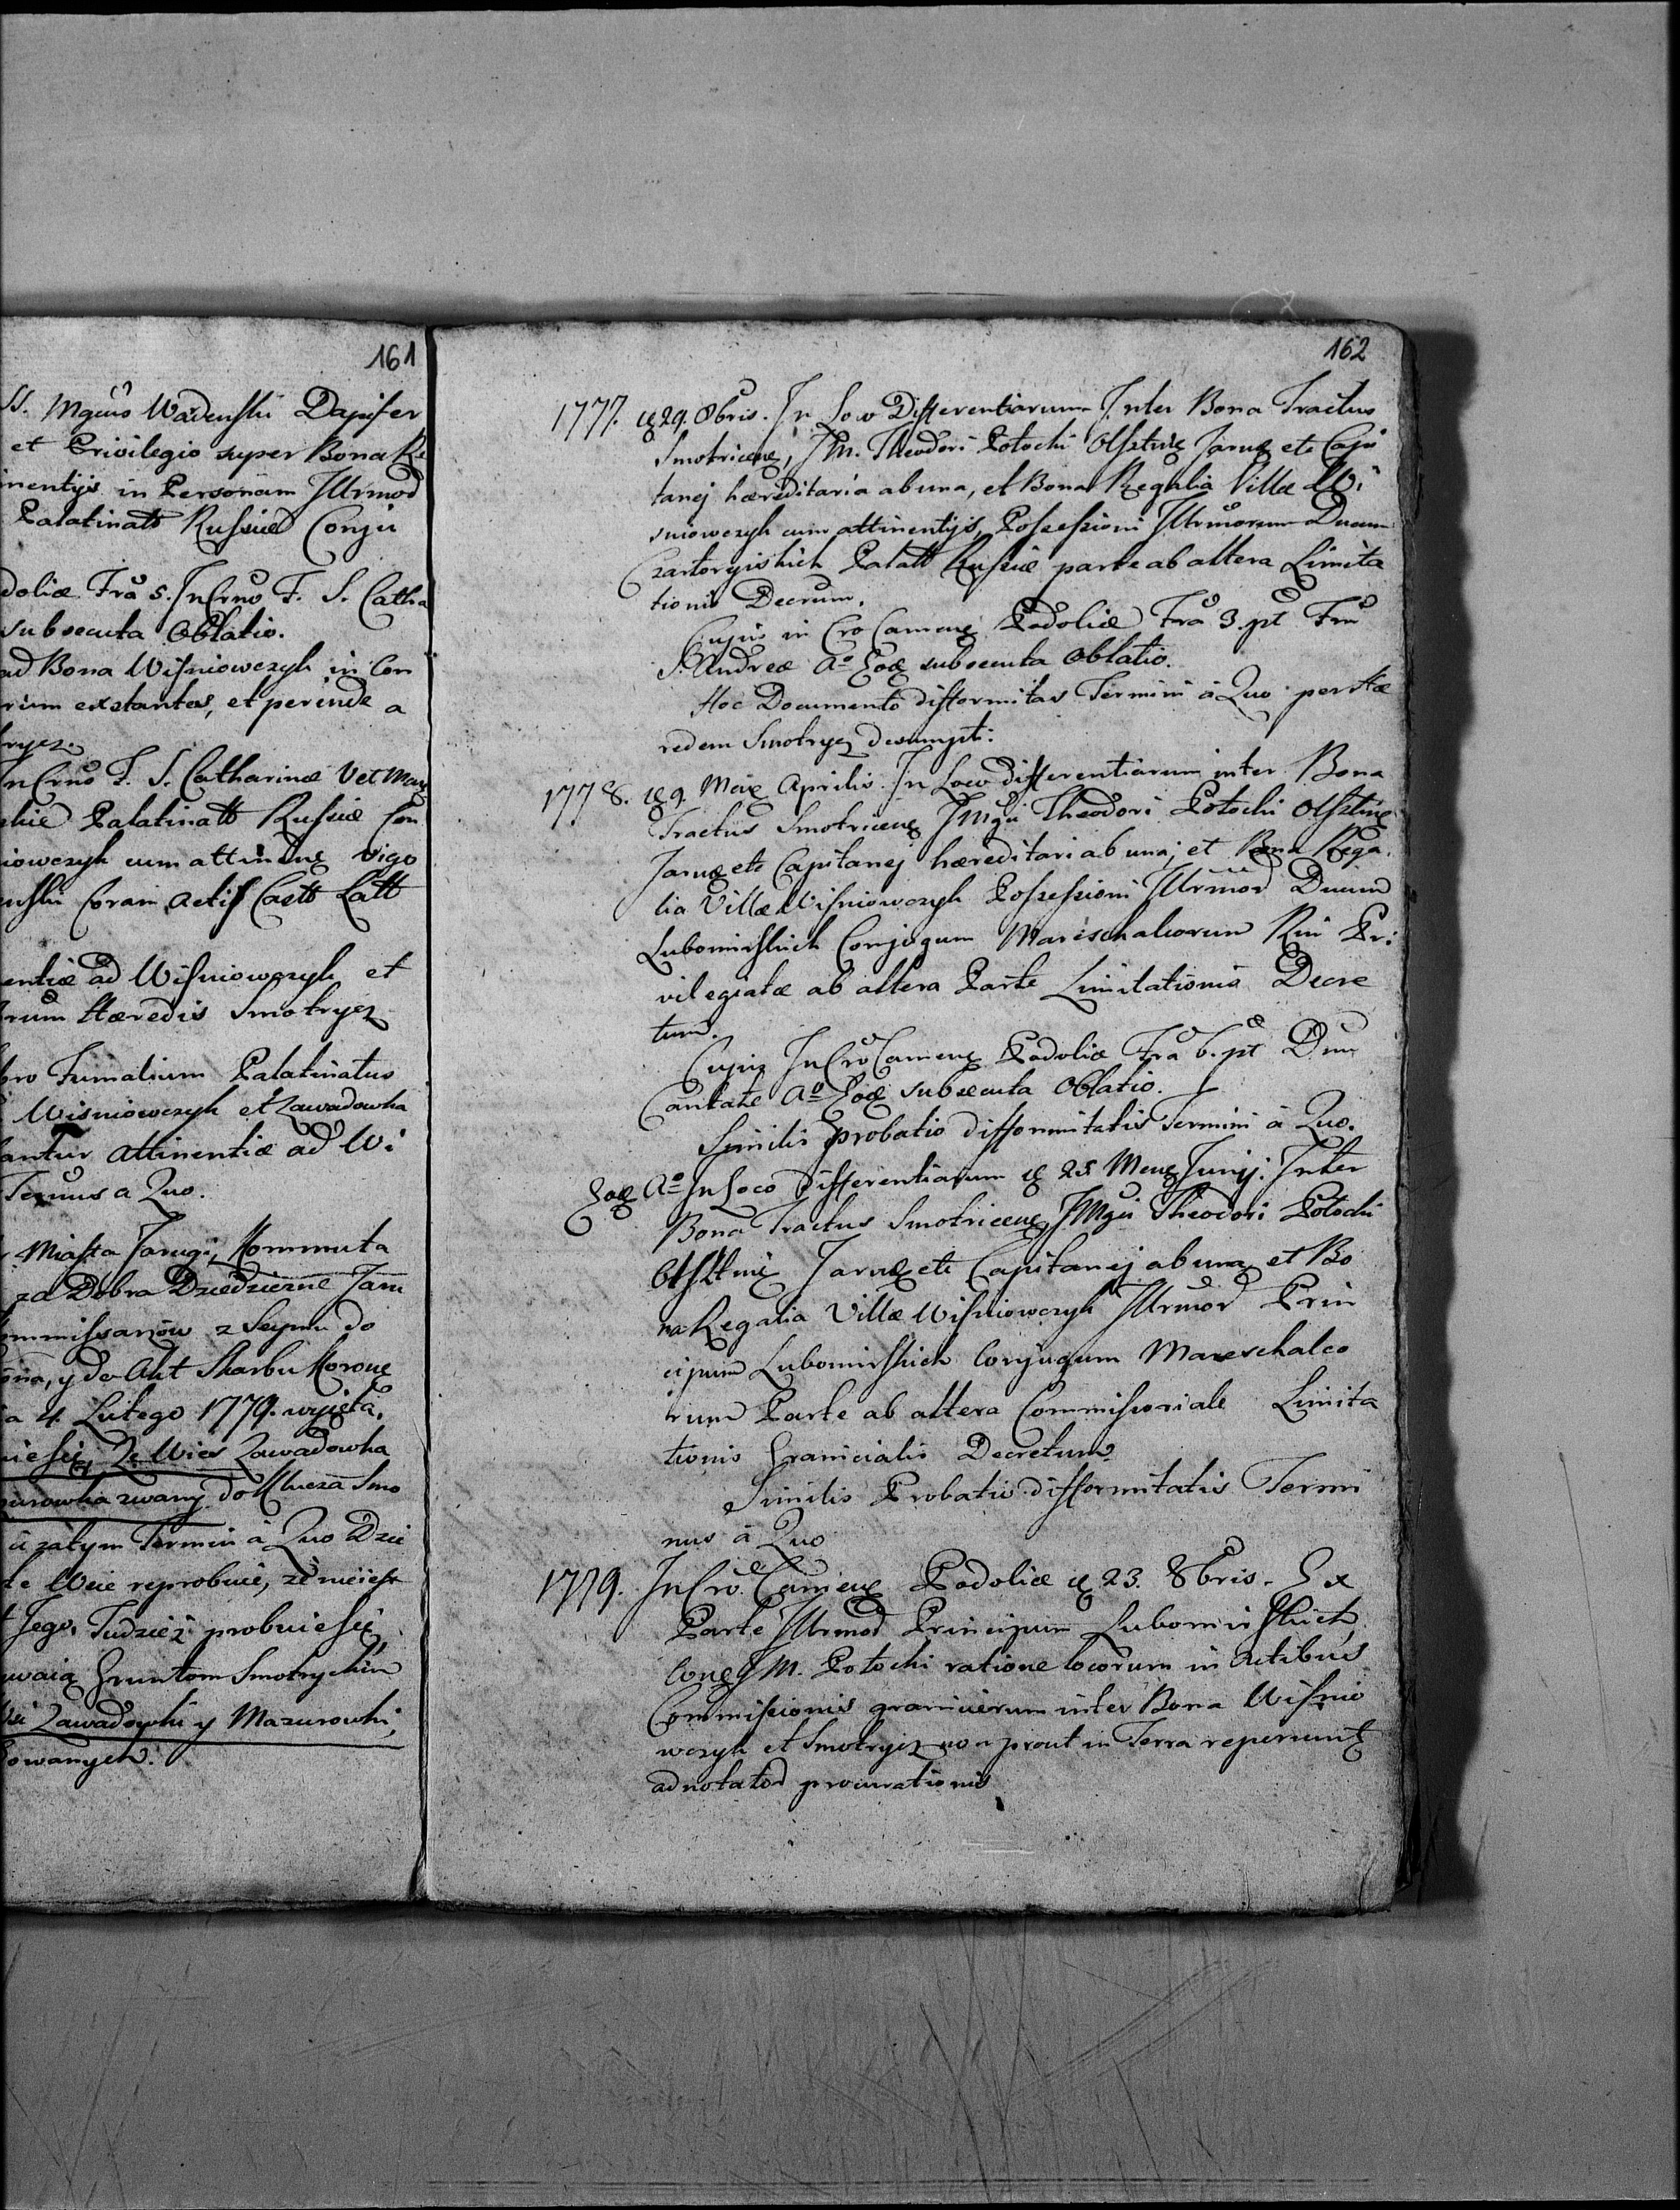 161
SS. Mgcus Wadenski Dapifer
et Privilegio super Bona Re
inentijs in Personam Illrmod
Palatinatt Russiæ Conju
doliæ Fra 5. In Crno F. S. Catha
subsecuta Oblatio.
ad Bona Wisniowczyk in Con
rium extantes, et perinde a
tryez.
In Crno F. S. Catharinæ V et Mar
skie Palatinatt Russiæ Con
iowczyk cum attinene vigo
enski Coram Actis Castt Latt
entiæ ad Wisniowczyk et
rum Hæredis Smotryez
bro Fumalium Palatinatus
Wisniowczyk et Zawadowka
antur attinentiæ ad Wi
Termus a Quo.
Miasta Jarugi, Kommuta
za Dobra Dziedziczne Jam
ommissarzow z Seymu do
ona, y do Akt Skarbu Korone
a 4. Lutego 1779. wyięta,
uie się, Ze Wies Zawadowka
urowka zwany do Klucza Smo
a zatym Termin à Quo Dzie
te Wsie reprobuie, ze nie iest
Jego. Tudziez probuie się,
uwaią Gruntom Smotryckim
si Zawadowki y Mazurowki,
sowanych.
162
1777. æ 29. 8bris. In Loco Differentiarum Inter Bona Tractus
Smotricene, JM. Theodori Potocki Olsztine Jarue etc Capi
tanej hæreditaria ab una, et Bona Regalia Villæ Wi
sniowczyk cum attinentijs, Possessioni Illrmorum Ducum
Czartoryiskich Palatt Russiæ parte ab altera Limita
tionis Decrum.
Cujus in Cro Camene Podoliæ Fra 3. pt Fm
S. Andreæ Ao Eoe subsecuta Oblatio.
Hoc Documento difformitas Termini à Quo per Hæ
redem Smotryez desumpti:
1778. æ 9. Mene Aprilis. In Loco differentiarum inter Bona
Tractus Smotricene JMgci Theodori Potocki Olsztine
Jarue etc Capitanej hæreditari ab una; et Bona Rega
lia Villæ Wisniowczyk Possessioni Illrmod Ducum
Lubomirskich Conjugum Mareschalcorum Rni Pri
vilegiatæ ab altera Parte Limitationis Decre
tum.
Cujus In Cro Camene Podoliæ Fra 6. pt Dnm
Cantate Ao Eoe subsecuta Oblatio.
Similis probatio difformitatis Termini à Quo.
Eoe Ao In Loco Differentiarum æ 25 Mene Junij. Inter
Bona Tractus Smotricene JMgci Theodori Potocki
Olsztine Jarue etc Capitanej ab una et Bo
na Regalia Villæ Wisniowczyk Illrmod Prin
cipum Lubomirskich Conjugum Mareschalco
rum Parte ab altera Commissoriale Limita
tionis Granicialis Decretum.
Similis Probatio difformitatis Termi
nus à Quo
1779. In Cro Camene Podoliæ æ 23. 8bris. Ex
Parte Illrmod Principum Lubomirskich
Cone JM. Potocki ratione locorum in Actibus
Commissionis granicierum inter Bona Wisnio
wczyk et Smotryez non prout in Terra reperiunt
adnotatod procurationis